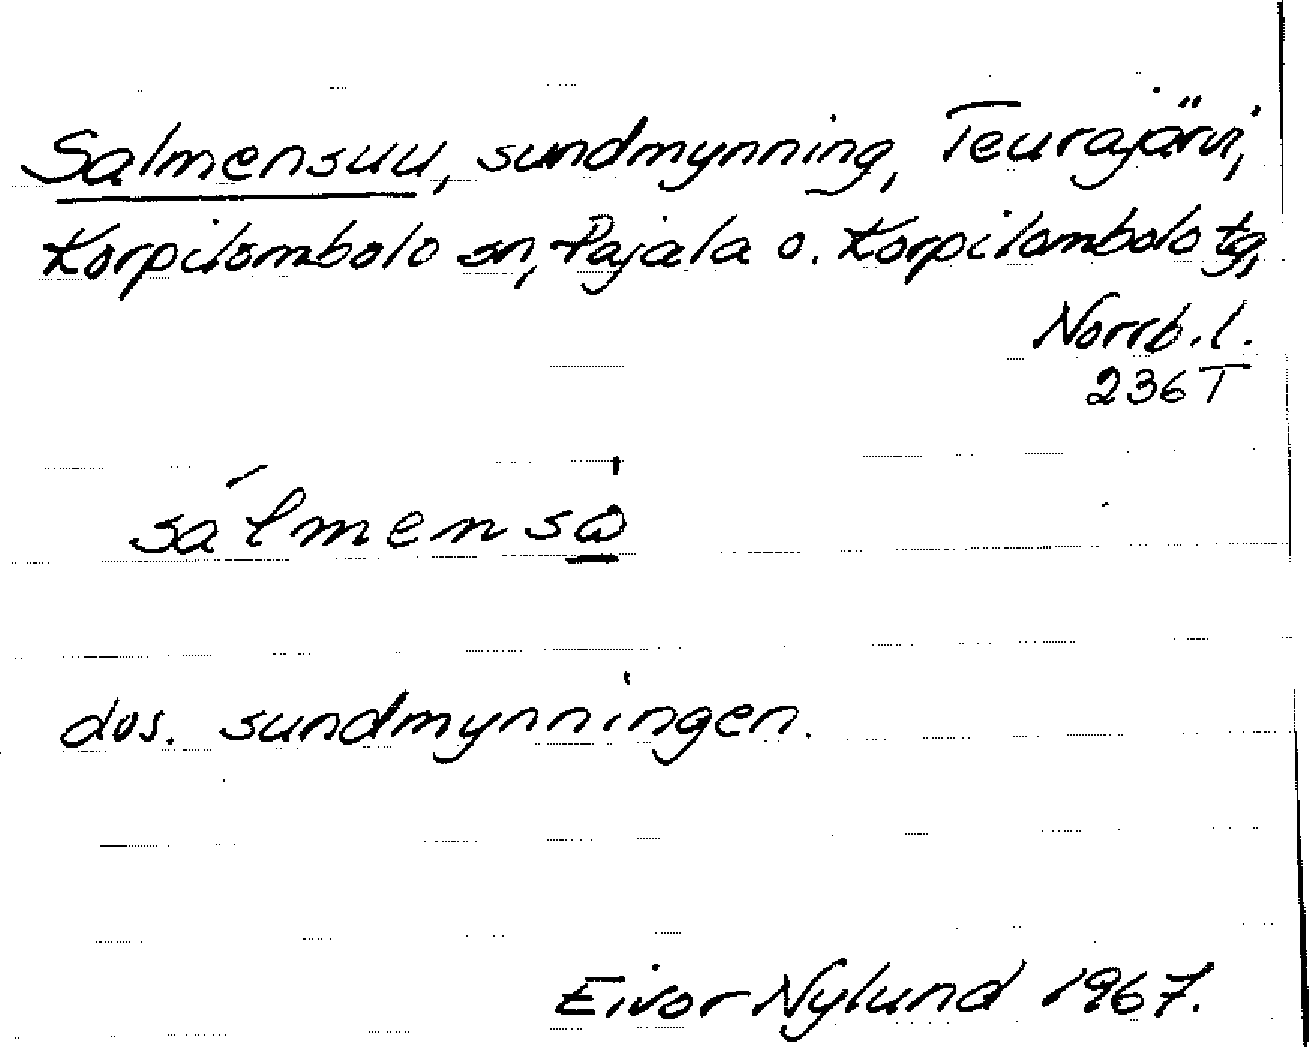 Salmensuu, sundmynning, Teurajärvi,
Korpilombolo sn, Pajala o. Korpilombolo tg,
Norrb. l.
236 T
dvs. sundmynningen.
Eivor Nylund 1967.